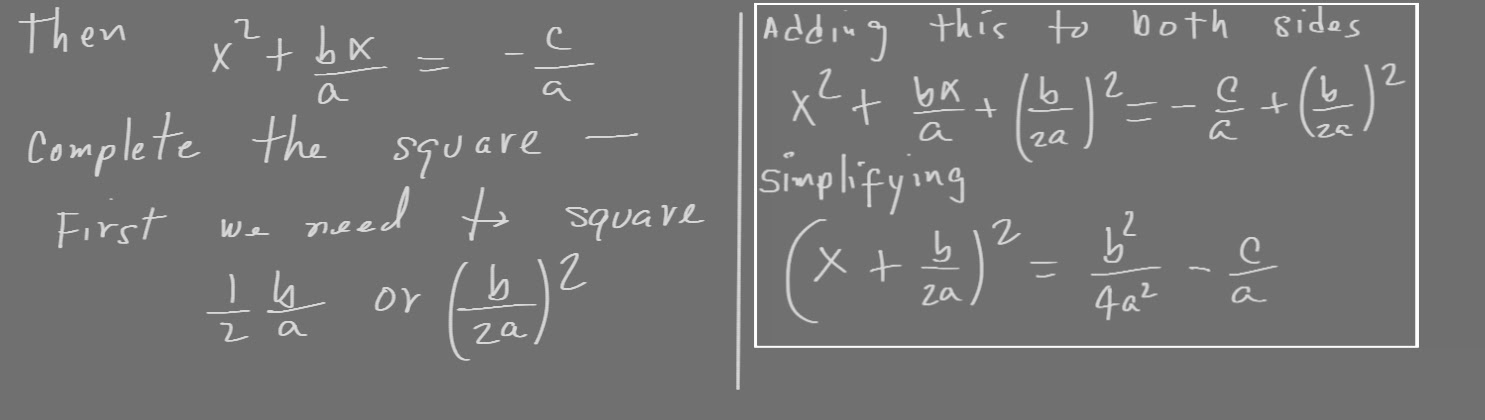 Then x² + bx/a = - c/a
Complete the square —
First we need to square
1/2 b/a or (b/2a)²
Adding this to both sides
x² + bx/a + (b/2a)² = - c/a + (b/2a)²
Simplifying
(x + b/2a)² = b²/4a² - c/a